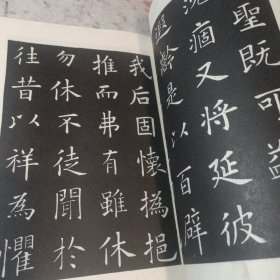 聖既可
沉痼又將延彼
遐齡是以百辟
我后固懷撝挹
推而弗有雖休
勿休不徒聞於
往昔以祥為懼